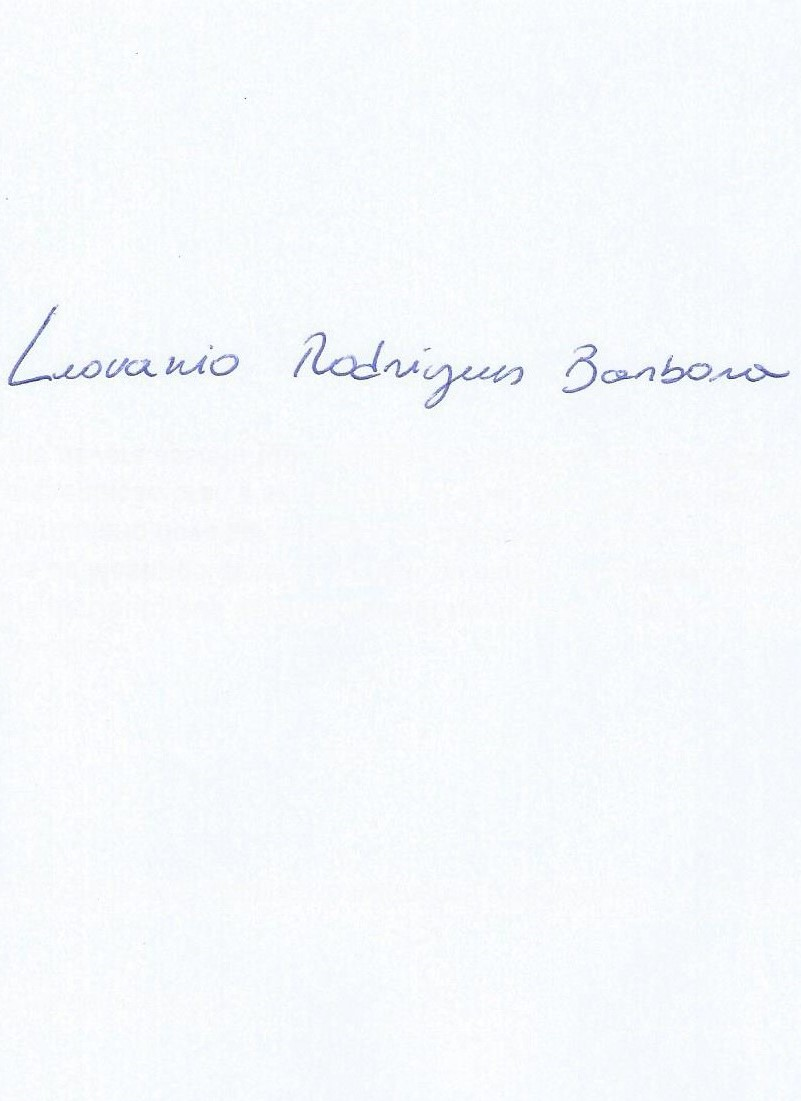 Leovanio Rodrigues Barbosa